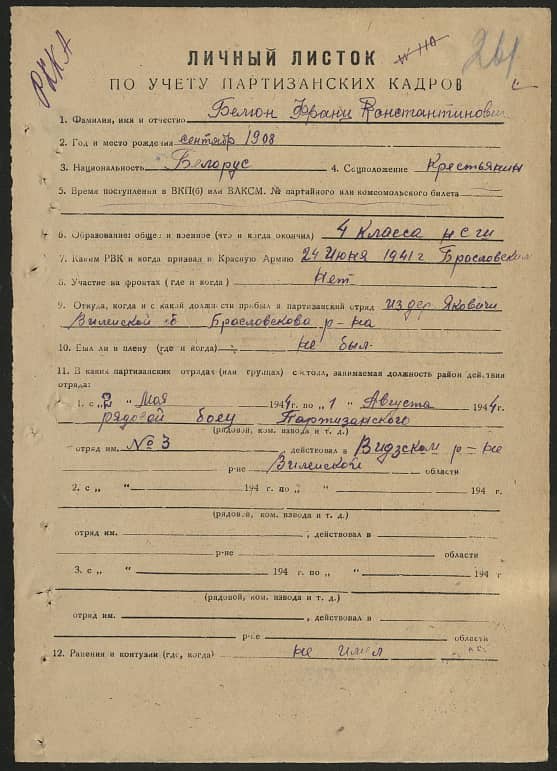 РККА
261
ЛИЧНЫЙ ЛИСТОК
ПО УЧЕТУ ПАРТИЗАНСКИХ КАДРОВ
1. Фамилия, имя и отчество Франц Константинович
2. Год и место рождения сентябр 1908
3. Национальность Белорус 4. Соцположение Крестьянин
5. Время поступления в ВКП(б) или ВЛКСМ. № партийного или комсомольского билета
6. Образование: общее и военное (что и когда окончил) 4 класса
7. Каким РВК и когда призван в Красную Армию 24 июня 1941 г Брасловским
8. Участие на фронтах (где и когда) Нет
9. Откуда, когда и с какой должности прибыл в партизанский отряд из дер. Яковичи
Вилейской об Брасловскова р-на
10. Был ли в плену (где и когда) не был
11. В каких партизанских отрядах (или группах) состоял, занимаемая должность район действия
отряда:
1. с „2 " Мая 1944 г. по „1 " Августа 1944 г.
рядовой боец Партизанского
(рядовой, ком. взвода и т. д.)
отряд им. № 3 , действовал в Видзском р-не
р-не Вилейской области
2. с „ " 194 г. по „ " 194 г.
(рядовой, ком. взвода и т. д.)
отряд им. , действовал в
р-не области
3. с „ " 194 г. по „ " 194 г
(рядовой, ком. взвода и т. д.)
отряд им. , действовал в
р-не области
12. Ранения и контузии (где, когда) не имел